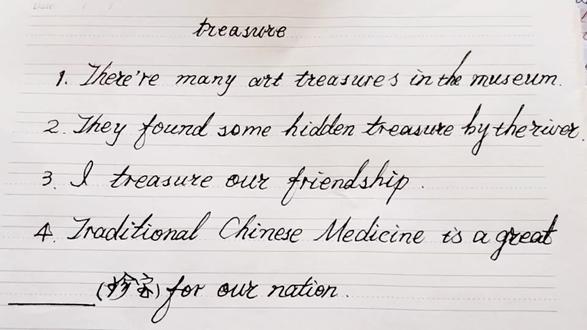 treasure
1. There're many art treasures in the museum.
2. They found some hidden treasure by the river.
3. I treasure our friendship.
4. Traditional Chinese Medicine is a great
________(珍宝) for our nation.